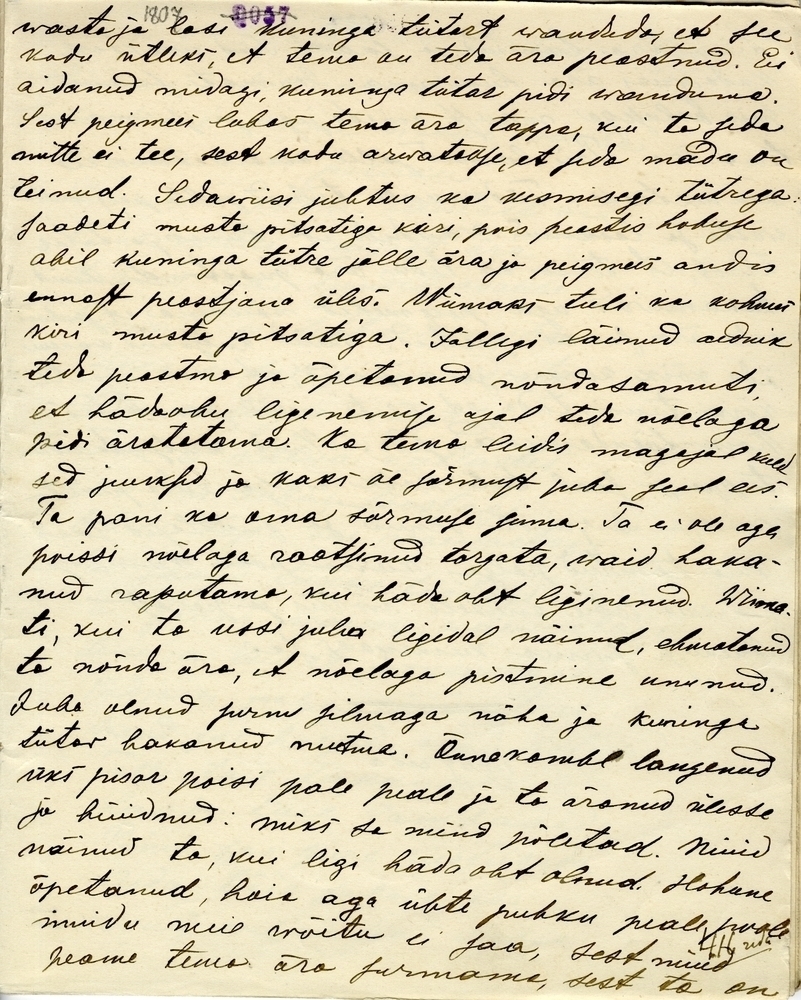 1807 0057
wasta ja lasi kuninga tütart wanduda, et see
kodu ütleks, et tema on teda ära peastnud. Ei
aidanud midagi, kuninga tütar pidi wanduma.
Sest peigmees lubas tema ära tappa, kui ta seda
mitte ei tee, sest kodu arwatakse, et seda madu on
teinud. Sedawiisi juhtus ka kesmisegi tütrega:
saadeti musta pitsatiga kiri, pois peastis hobuse
abil kuninga tütre jälle ära ja peigmees andis
ennast peastjana üles. Wiimaks tuli ka kolmas
kiri musta pitsatiga. Jällegi läinud aednik
teda peastma ja õpetanud nõndasamuti,
et hädaohu ligenemise ajal teda nõelaga
pidi äratatama. Ka tema leidis magajal kuld
sed juuksed ja kaks õe sõrmust juba seal ees.
Ta pani ka oma sõrmuse sinna. Ta ei ole aga
poissi nõelaga raatsinud torgata, waid haka-
nud raputama, kui häda oht liginenud. Wiima-
ti, kui ta ussi juba ligidal näinud, ehmatanud
ta nõnda ära, et nõelaga pistmine ununud.
Juba olnud surm silmaga näha ja kuninga
tütar hakanud nutma. Õnnekombel langenud
üks pisar poisi pale peale ja ta äranud ülesse
ja hüüdnud: miks sa mind põletad. Nüüd
näinud ta, kui ligi häda oht olnud. Hobune
õpetanud, hoia aga ühte puhku peale poole
muidu meie wõitu ei saa, sest nüüd
peame tema ära surmama, sest ta on